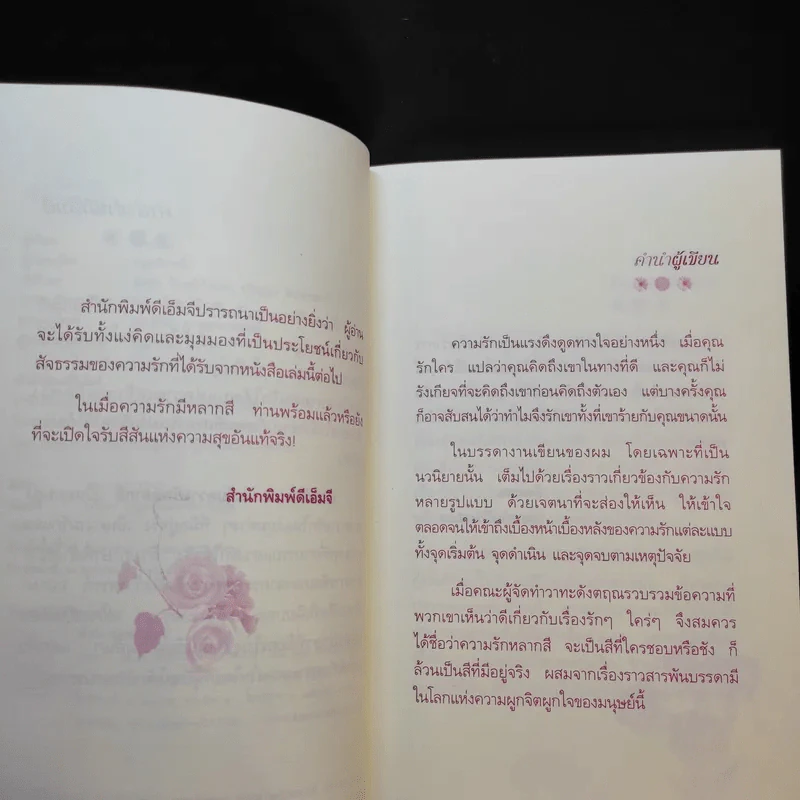 สำนักพิมพ์ดีเอ็มจีปรารถนาเป็นอย่างยิ่งว่า ผู้อ่าน
จะได้รับทั้งแง่คิดและมุมมองที่เป็นประโยชน์เกี่ยวกับ
สัจธรรมของความรักที่ได้รับจากหนังสือเล่มนี้ต่อไป
ในเมื่อความรักมีหลากสี ท่านพร้อมแล้วหรือยัง
ที่จะเปิดใจรับสีสันแห่งความสุขอันแท้จริง!
สำนักพิมพ์ดีเอ็มจี
คำนำผู้เขียน
ความรักเป็นแรงดึงดูดทางใจอย่างหนึ่ง เมื่อคุณ
รักใคร แปลว่าคุณคิดถึงเขาในทางที่ดี และคุณก็ไม่
รังเกียจที่จะคิดถึงเขาก่อนคิดถึงตัวเอง แต่บางครั้งคุณ
ก็อาจสับสนได้ว่าทำไมจึงรักเขาทั้งที่เขาร้ายกับคุณขนาดนั้น
ในบรรดางานเขียนของผม โดยเฉพาะที่เป็น
นวนิยายนั้น เต็มไปด้วยเรื่องราวเกี่ยวข้องกับความรัก
หลายรูปแบบ ด้วยเจตนาที่จะส่องให้เห็น ให้เข้าใจ
ตลอดจนให้เข้าถึงเบื้องหน้าเบื้องหลังของความรักแต่ละแบบ
ทั้งจุดเริ่มต้น จุดดำเนิน และจุดจบตามเหตุปัจจัย
เมื่อคณะผู้จัดทำวาทะดังตฤณรวบรวมข้อความที่
พวกเขาเห็นว่าดีเกี่ยวกับเรื่องรักๆ ใคร่ๆ จึงสมควร
ได้ชื่อว่าความรักหลากสี จะเป็นสีที่ใครชอบหรือชัง ก็
ล้วนเป็นสีที่มีอยู่จริง ผสมจากเรื่องราวสารพันบรรดามี
ในโลกแห่งความผูกจิตผูกใจของมนุษย์นี้